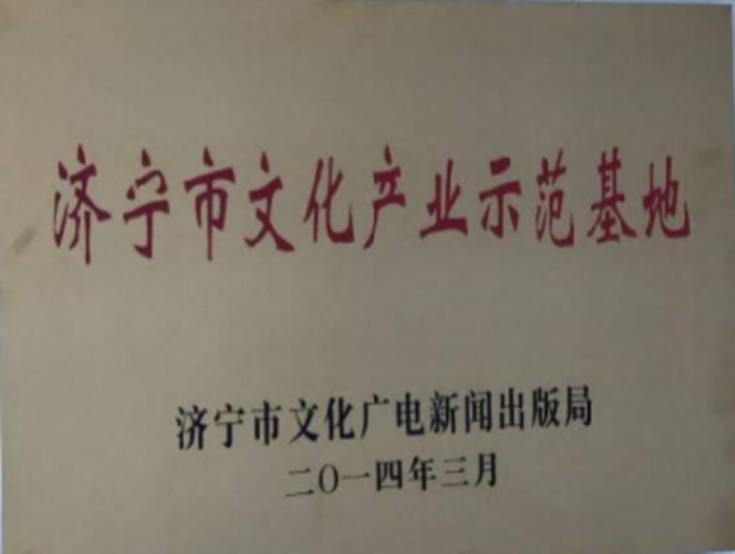 济宁市文化产业示范基地
济宁市文化广电新闻出版局
二〇一四年三月